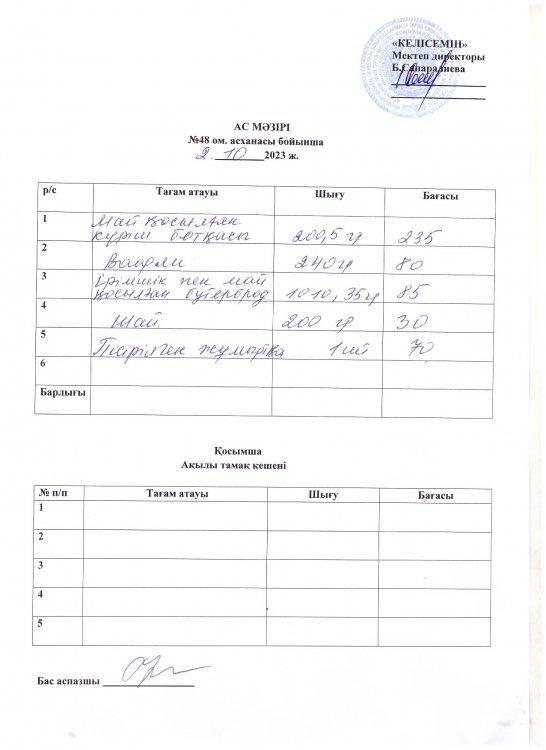 «КЕЛІСЕМІН»
Мектеп директоры
Б.Сапаралиева
АС МӘЗІРІ
№48 ом. асханасы бойынша
2. 10 2023 ж.
р/с Тағам атауы Шығу Бағасы
1 Май қосылған
күріш ботқасы 200,5 гр 235
2 Вафли 240гр 80
3 Ірімшік пен май
қосылған бутерброд 10 10, 35гр 85
4 Шай 200 гр 30
5 Пісірілген жұмыртқа 1 шт 70
6
Барлығы
Қосымша
Ақылы тамақ кешені
№ п/п Тағам атауы Шығу Бағасы
1
2
3
4
5
Бас аспазшы